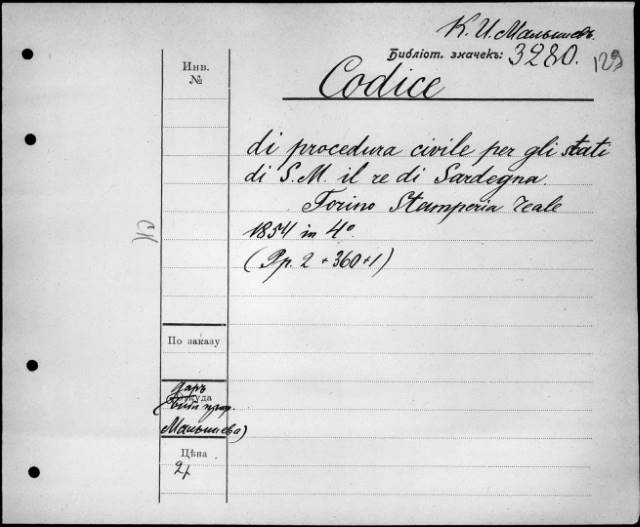 К. И. Малышевъ.
Библіот. значекъ: 3280.
129
Инв.
№
Codice
di procedura civile per gli stati
di S. M. il re di Sardegna.
Torino Stamperia reale
1854 in 4°.
(Pp. 2 + 360 + 1)
По заказу
Даръ
Откуда
Малышева)
Цѣна
2р